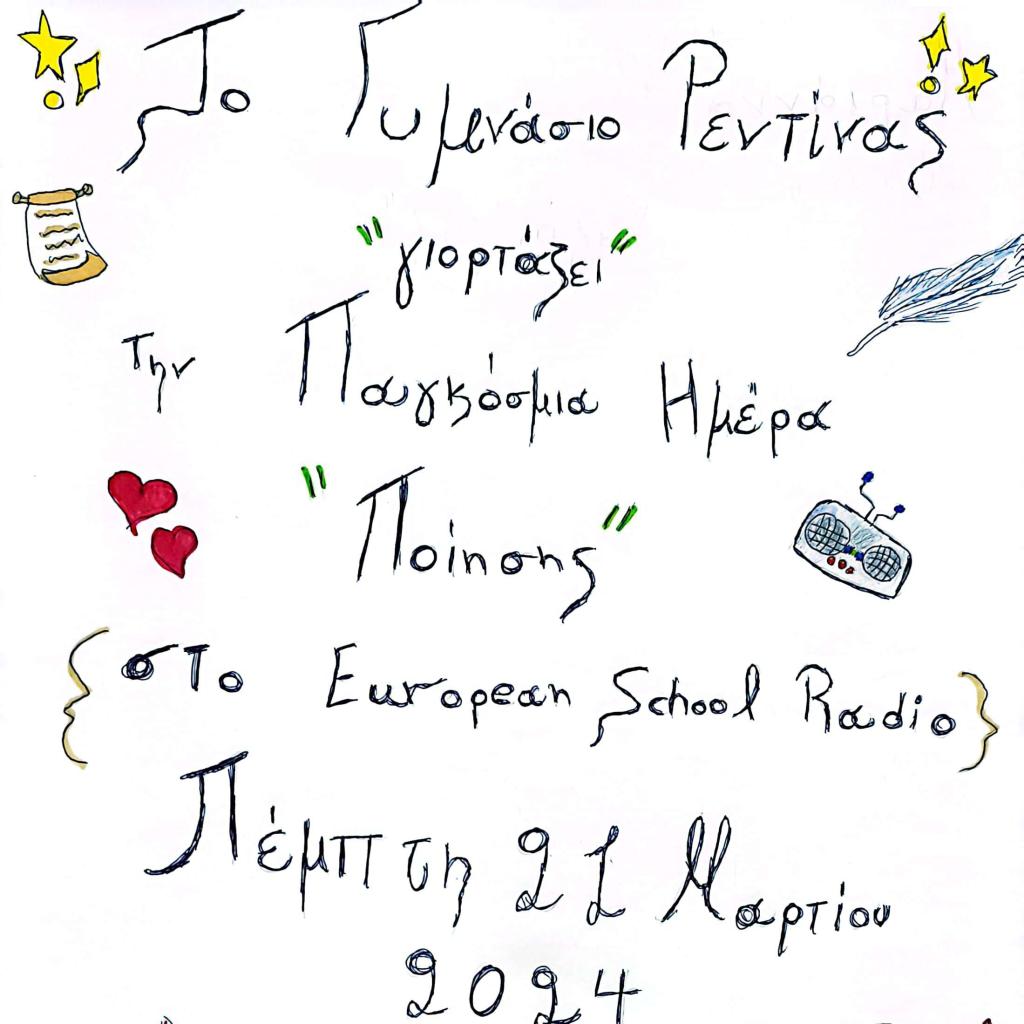 Το Γυμνάσιο Ρεντίνας
"γιορτάζει"
την Παγκόσμια Ημέρα
"Ποίησης"
{στο European School Radio}
Πέμπτη 21 Μαρτίου
2024